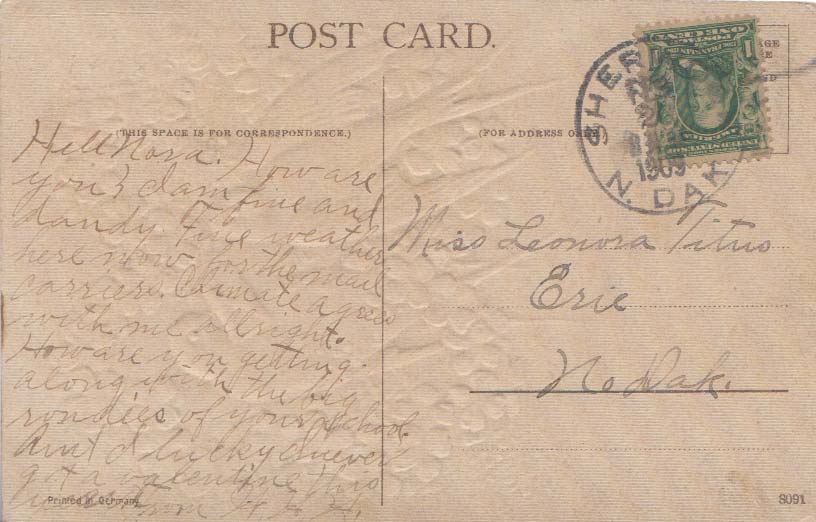 POST CARD.
(THIS SPACE IS FOR CORRESPONDENCE.)
(FOR ADDRESS
SHE
1909
N. DAK
1
ONE CENT
AMERICA
Hell Nora. How are
you? I am fine and
dandy. Fine weather
here now for the mail
carriers. Climate agrees
with me allright.
How are you getting
along with the big
rondies of your school.
Aint I lucky I never
got a valentine this
from H. H. H.
Miss Leonora Titus
Erie
No Dak.
Printed in Germany
8091